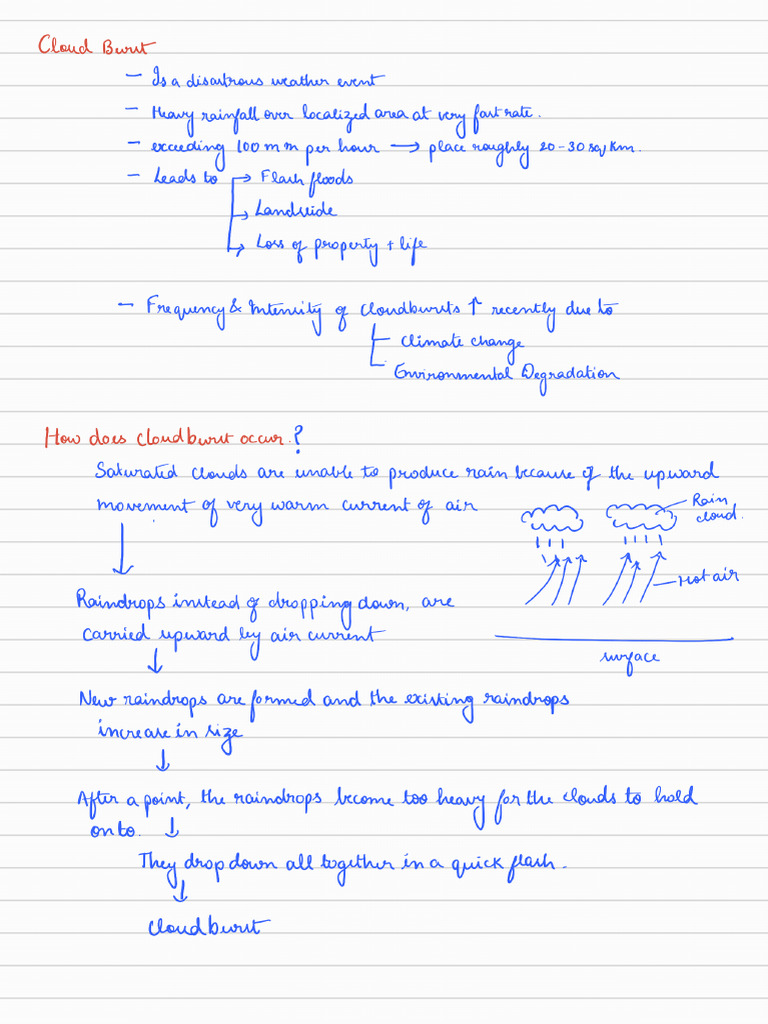 Cloud Burst
— Is a disastrous weather event
— Heavy rainfall over localized area at very fast rate.
— exceeding 100 mm per hour → place roughly 20-30 sq km.
— Leads to → Flash floods
→ Landslide
→ Loss of property + life
— Frequency & Intensity of cloudbursts ↑ recently due to
Climate change
Environmental Degradation
How does cloudburst occur?
Saturated clouds are unable to produce rain because of the upward
movement of very warm current of air
Rain
cloud.
Hot air
surface
↓
Raindrops instead of dropping down, are
carried upward by air current
↓
New raindrops are formed and the existing raindrops
increase in size
↓
After a point, the raindrops become too heavy for the clouds to hold
onto. ↓
They drop down all together in a quick flash.
↓
Cloudburst